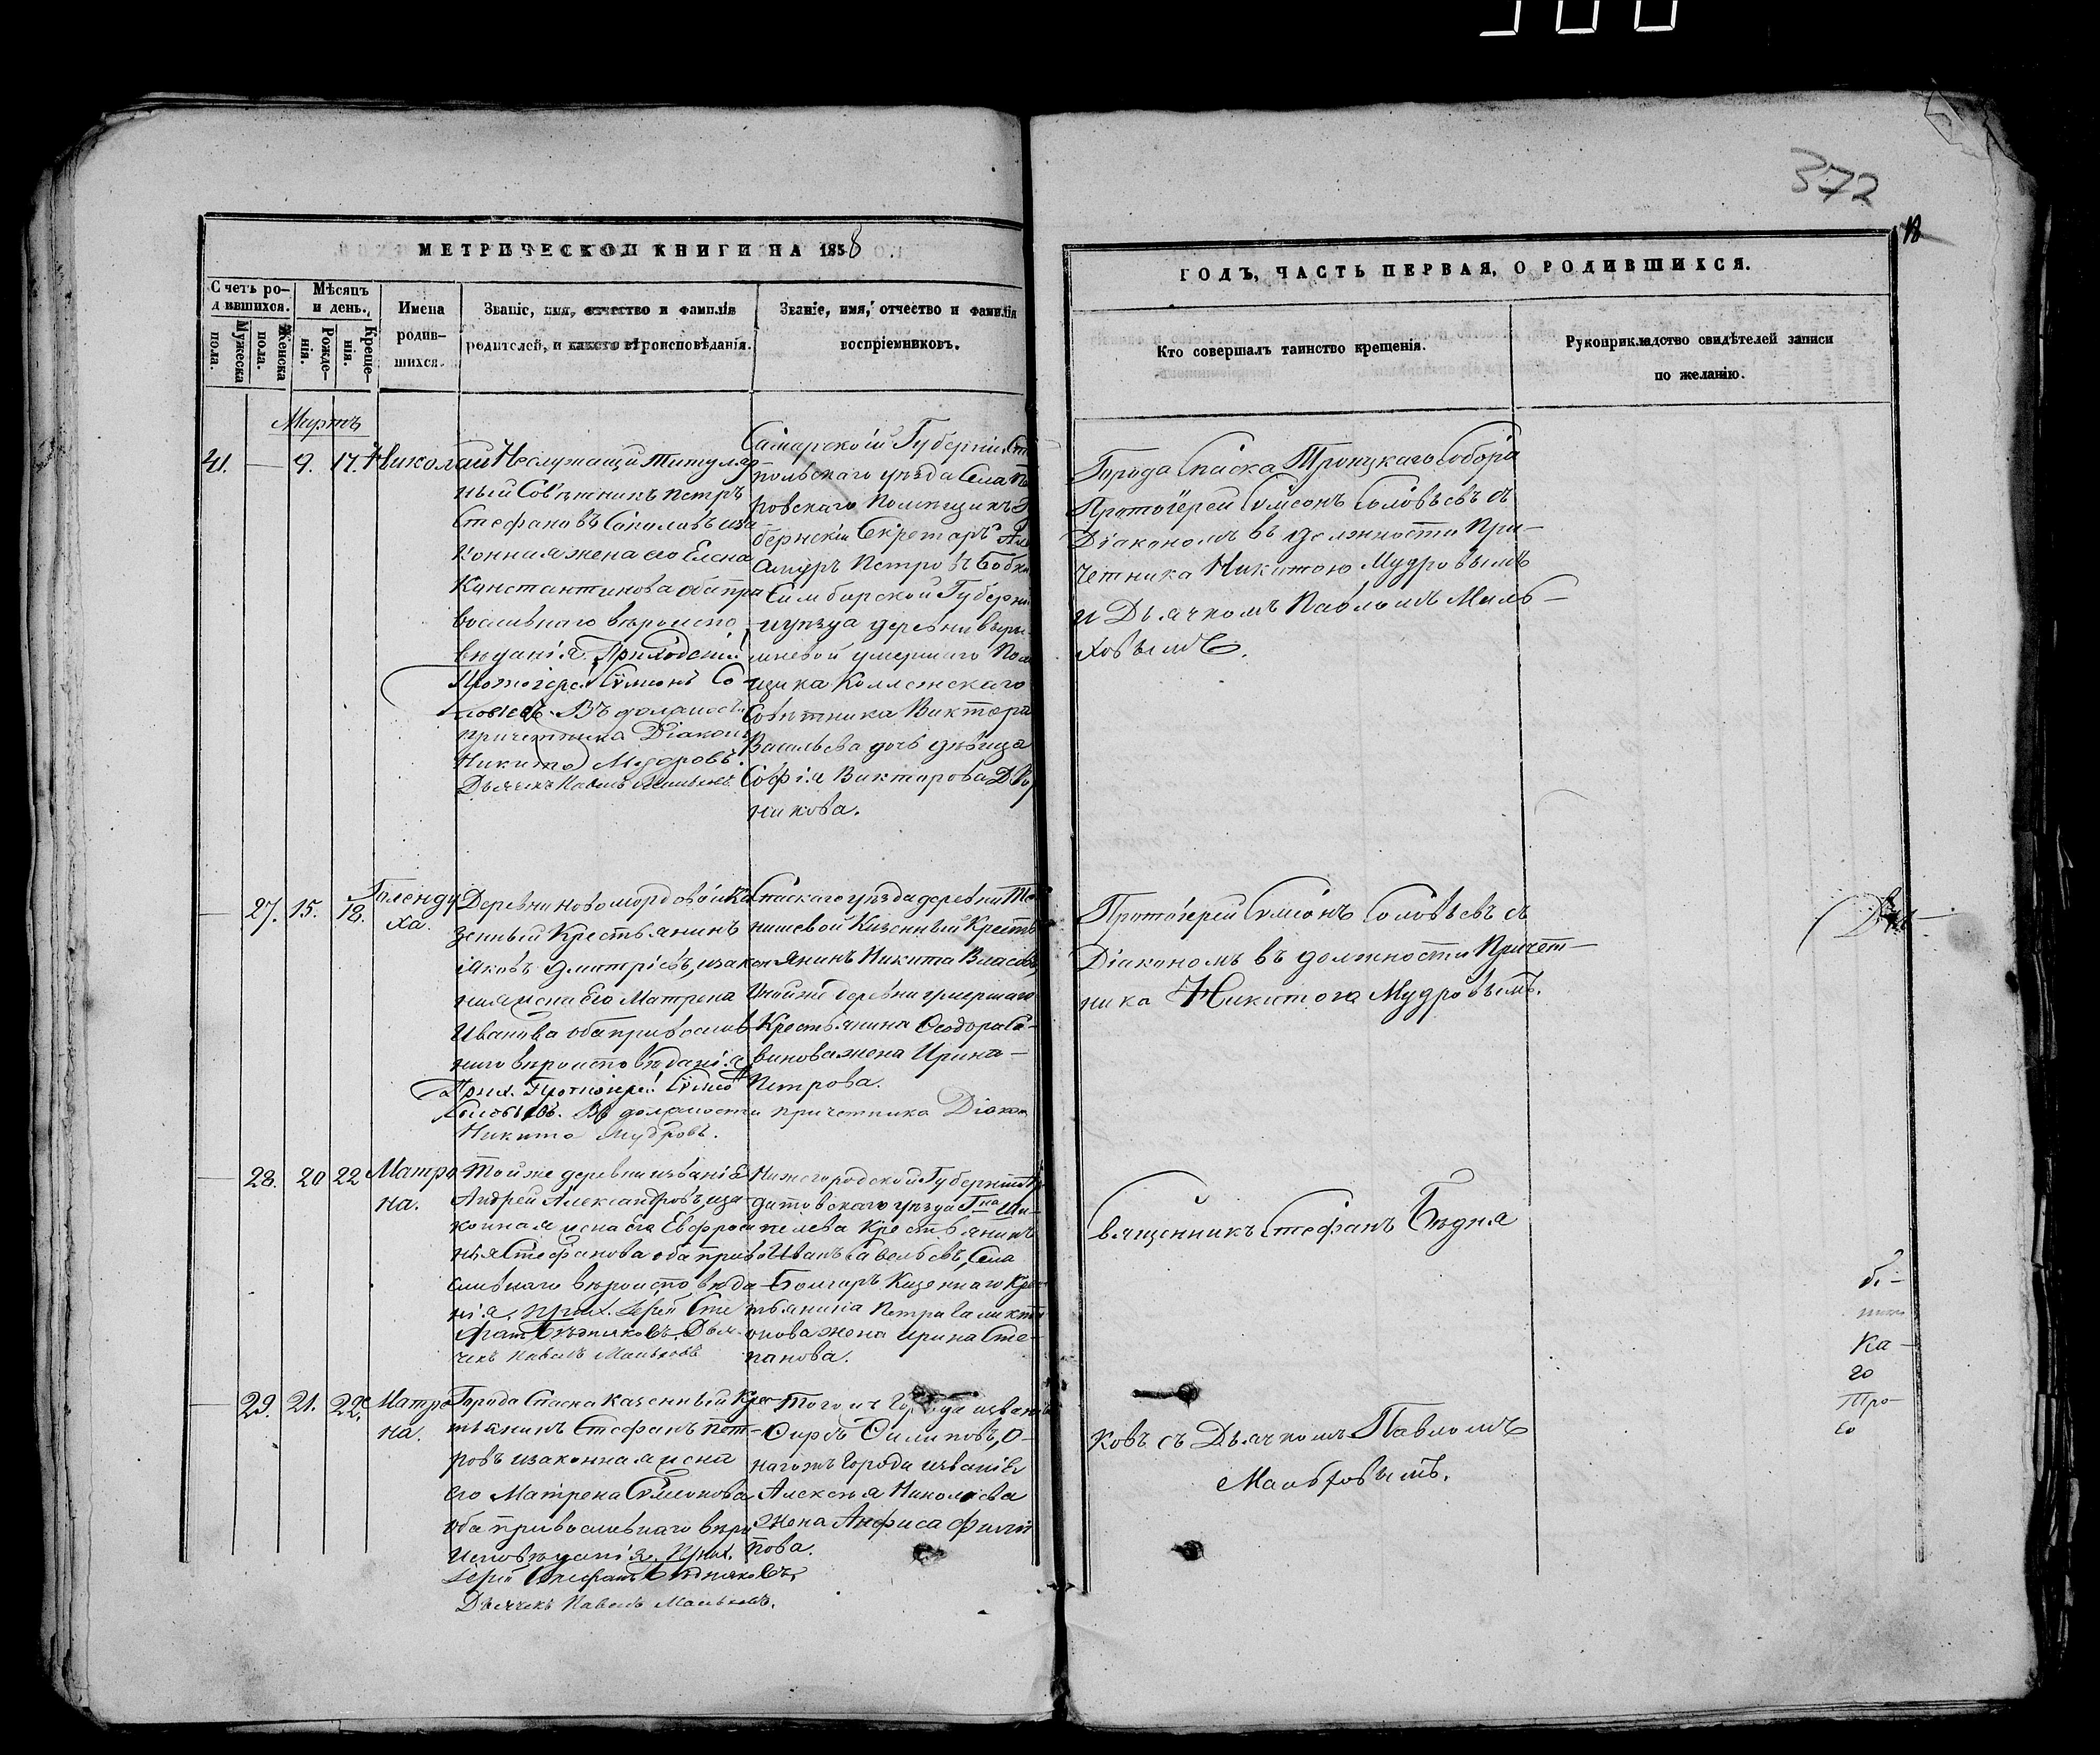 372
18
МЕТРИЧЕСКОЙ КНИГИ НА 1858
ГОДЪ, ЧАСТЬ ПЕРВАЯ, О РОДИВШИХСЯ.
Счетъ ро-
дившихся.
Мужеска
пола.
Женска
пола.
Мѣсяцъ
и день.
Рожде-
нія.
Креще-
нія.
Имена
родив-
шихся.
Званіе, имя, отчество и фамилія
родителей, и какого вѣроисповѣданія.
Званіе, имя, отчество и фамилія
воспріемниковъ.
Кто совершалъ таинство крещенія.
Рукоприкладство свидѣтелей записи
по желанію.
Мартъ
41. — 9. 17. Николай
Неслужащи титуляр
ный Совѣтникъ Петръ
Стефановъ Соколовъ иза
конная жена его Елена
Константинова оба пра
вославнаго вѣроиспо
вѣданія. Приходскій
Протоіерей Сѵмеонъ Со
ловьевъ. Въ должности
причетника Діаконъ
Никита Мудровъ.
Дьячекъ Павелъ
Самарской Губерніи Ст
польскаго уѣзда Села
ровскаго Помѣщикъ
бернскій Секретарь
Петровъ
Симбирской Губерн
и уѣзда деревни
умершаго Пом
щика Коллежскаго
Совѣтника Виктора
Васильева дочь дѣвица
Софія Викторова
никова.
Города Спаска Троицкаго Собора
Протоіерей Сѵмеонъ Соловьевъ съ
Діакономъ въ должности При-
четника Никитою Мудровымъ
и Дьячкомъ Павломъ Маль-
ховымъ.
— 27. 15. 18. Гликеру
ха.
Деревни Новомордовой Ка
зенный Крестьянинъ
Іаковъ Дмитріевъ, изакон
ная жена Его Матрена
Иванова оба православ
наго вѣроисповѣданія
Прих. Протоіерей Сѵмео
Соловьевъ. Въ должности причетника Діакон
Никита Мудровъ.
Спаскаго уѣзда деревни Те
нишевой Казенный Крестъ
янинъ Никита Власовъ,
деревни умершаго
Крестьянина Ѳеодора Са-
винова жена Ирина
Петрова.
Протоіерей Сѵмеонъ Соловьевъ съ
Діакономъ въ должности Причет-
ника Никитою Мудровымъ.
— 28. 20 22 Матро
на.
Той же деревни изваніе
Андрей Александровъ, иза
конная жена его Евфроси
нья Стефанова оба право
славнаго вѣроисповѣда
нія. Прих. Іерей Сте
фанъ Бѣдняковъ. Дья-
чекъ Павелъ Мальховъ
Нижегородской Губерніи
датовскаго уѣзда Гна Ши-
пелева Крестьянинъ
Иванъ Савельевъ, Села
Болгаръ Казеннаго Кре
стьянина Петра
жена Ирина Сте-
панова.
Священникъ Стефанъ Бѣдня
— 29. 21. 22. Матре
на.
Города Спаска казенный Кре
стьянинъ Стефанъ Пет-
ровъ изаконная жена
его Матрена Сѵмеонова
оба православнаго вѣро
исповѣданія. Прих.
Іерей Стефанъ Бѣдняковъ,
Дьячекъ Павелъ Мальховъ.
Того жъ Города изваніе
Филиповъ, О-
нагожъ Города изваніе
Алексѣя Николаева
жена Анфиса Фили
пова.
ковъ съ Дьячкомъ Павломъ
Мальховымъ.
Ка-
го
Тро-
Со